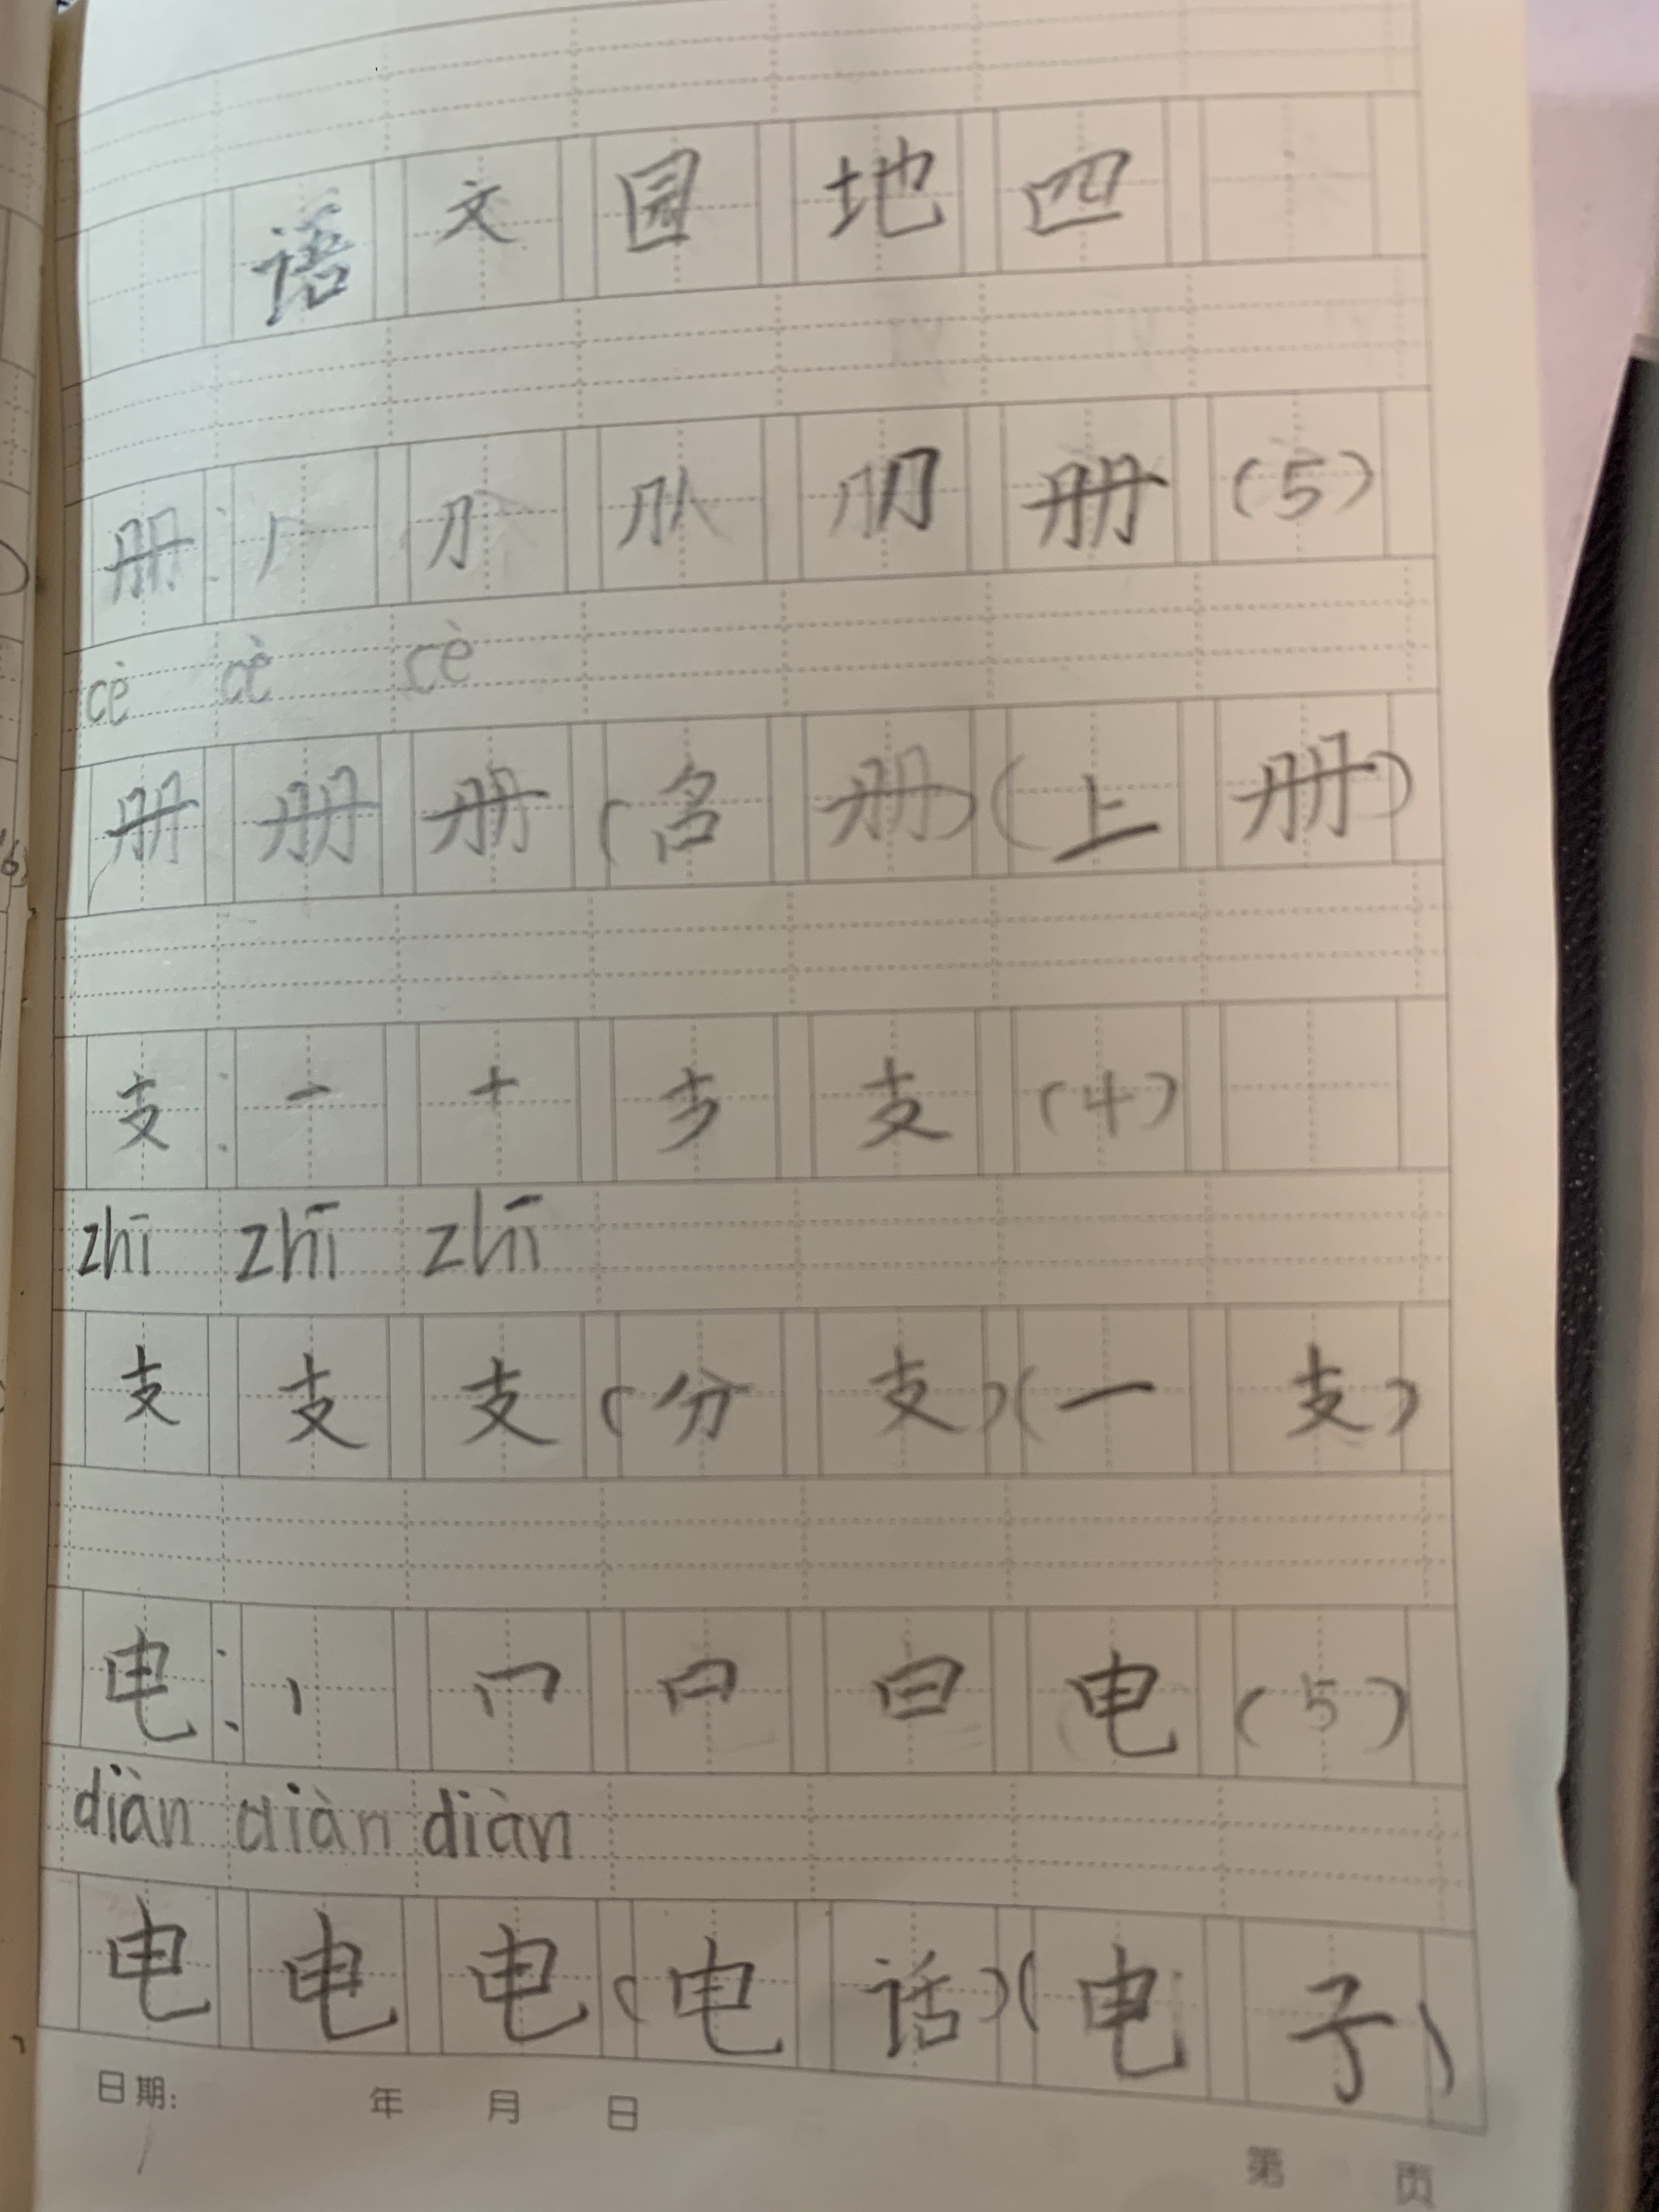 语文园地四
册: 丿 ⺆ 册 (5)
cè cè cè
册册册(名册)(上册)
支: 一 十 支 (4)
zhī zhī zhī
支支支(分支)(一支)
电: 丨 冂 日 电 (5)
diàn diàn diàn
电电电(电话)(电子)
日期: 年 月 日
第 页